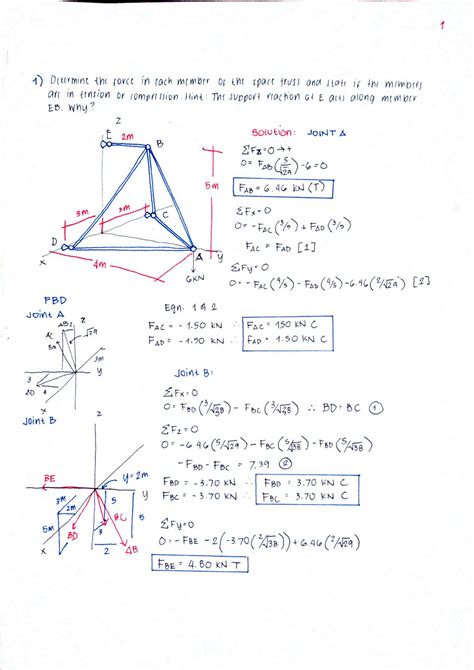 1
1) Determine the force in each member of the space truss and state if the members
are in tension or compression Hint: The support reaction at E acts along member
EB. Why?
Z
E
2m
B
5m
3m
3m
C
D
A
x
y
4m
6KN
Solution: JOINT A
ΣFz=0→+
0= FAB (5/√29) -6=0
FAB = 6.46 KN (T)
ΣFx=0
0= -FAC (3/5) + FAD (3/5)
FAC = FAD [1]
ΣFy=0
0= -FAC (4/5) - FAD (4/5) -6.46 (2/√29) [2]
FBD
Joint A
AB
z
√29
AC
5
3m
y
3
AD
4
x
Eqn. 1 & 2
FAC = - 1.50 KN ∴ FAC = 150 KN C
FAD = -1.50 KN ∴ FAD = 1.50 KN C
Joint B:
ΣFx=0
0= FBD (3/√38) - FBC (3/√38) ∴ BD = BC ①
ΣFz=0
0= -6.46 (5/√29) - FBC (5/√38) - FBD (5/√38)
-FBD - FBC = 7.39 ②
FBD = -3.70 KN ∴ FBD = 3.70 KN C
FBC = -3.70 KN ∴ FBC = 3.70 KN C
ΣFy=0
0= -FBE -2(-3.70 (2/√38)) + 6.46 (2/√29)
FBE = 4.80 KN T
Joint B
z
BE
y=2m
3m
2m
5
y
5m
BC
5
BD
3
x
2
AB